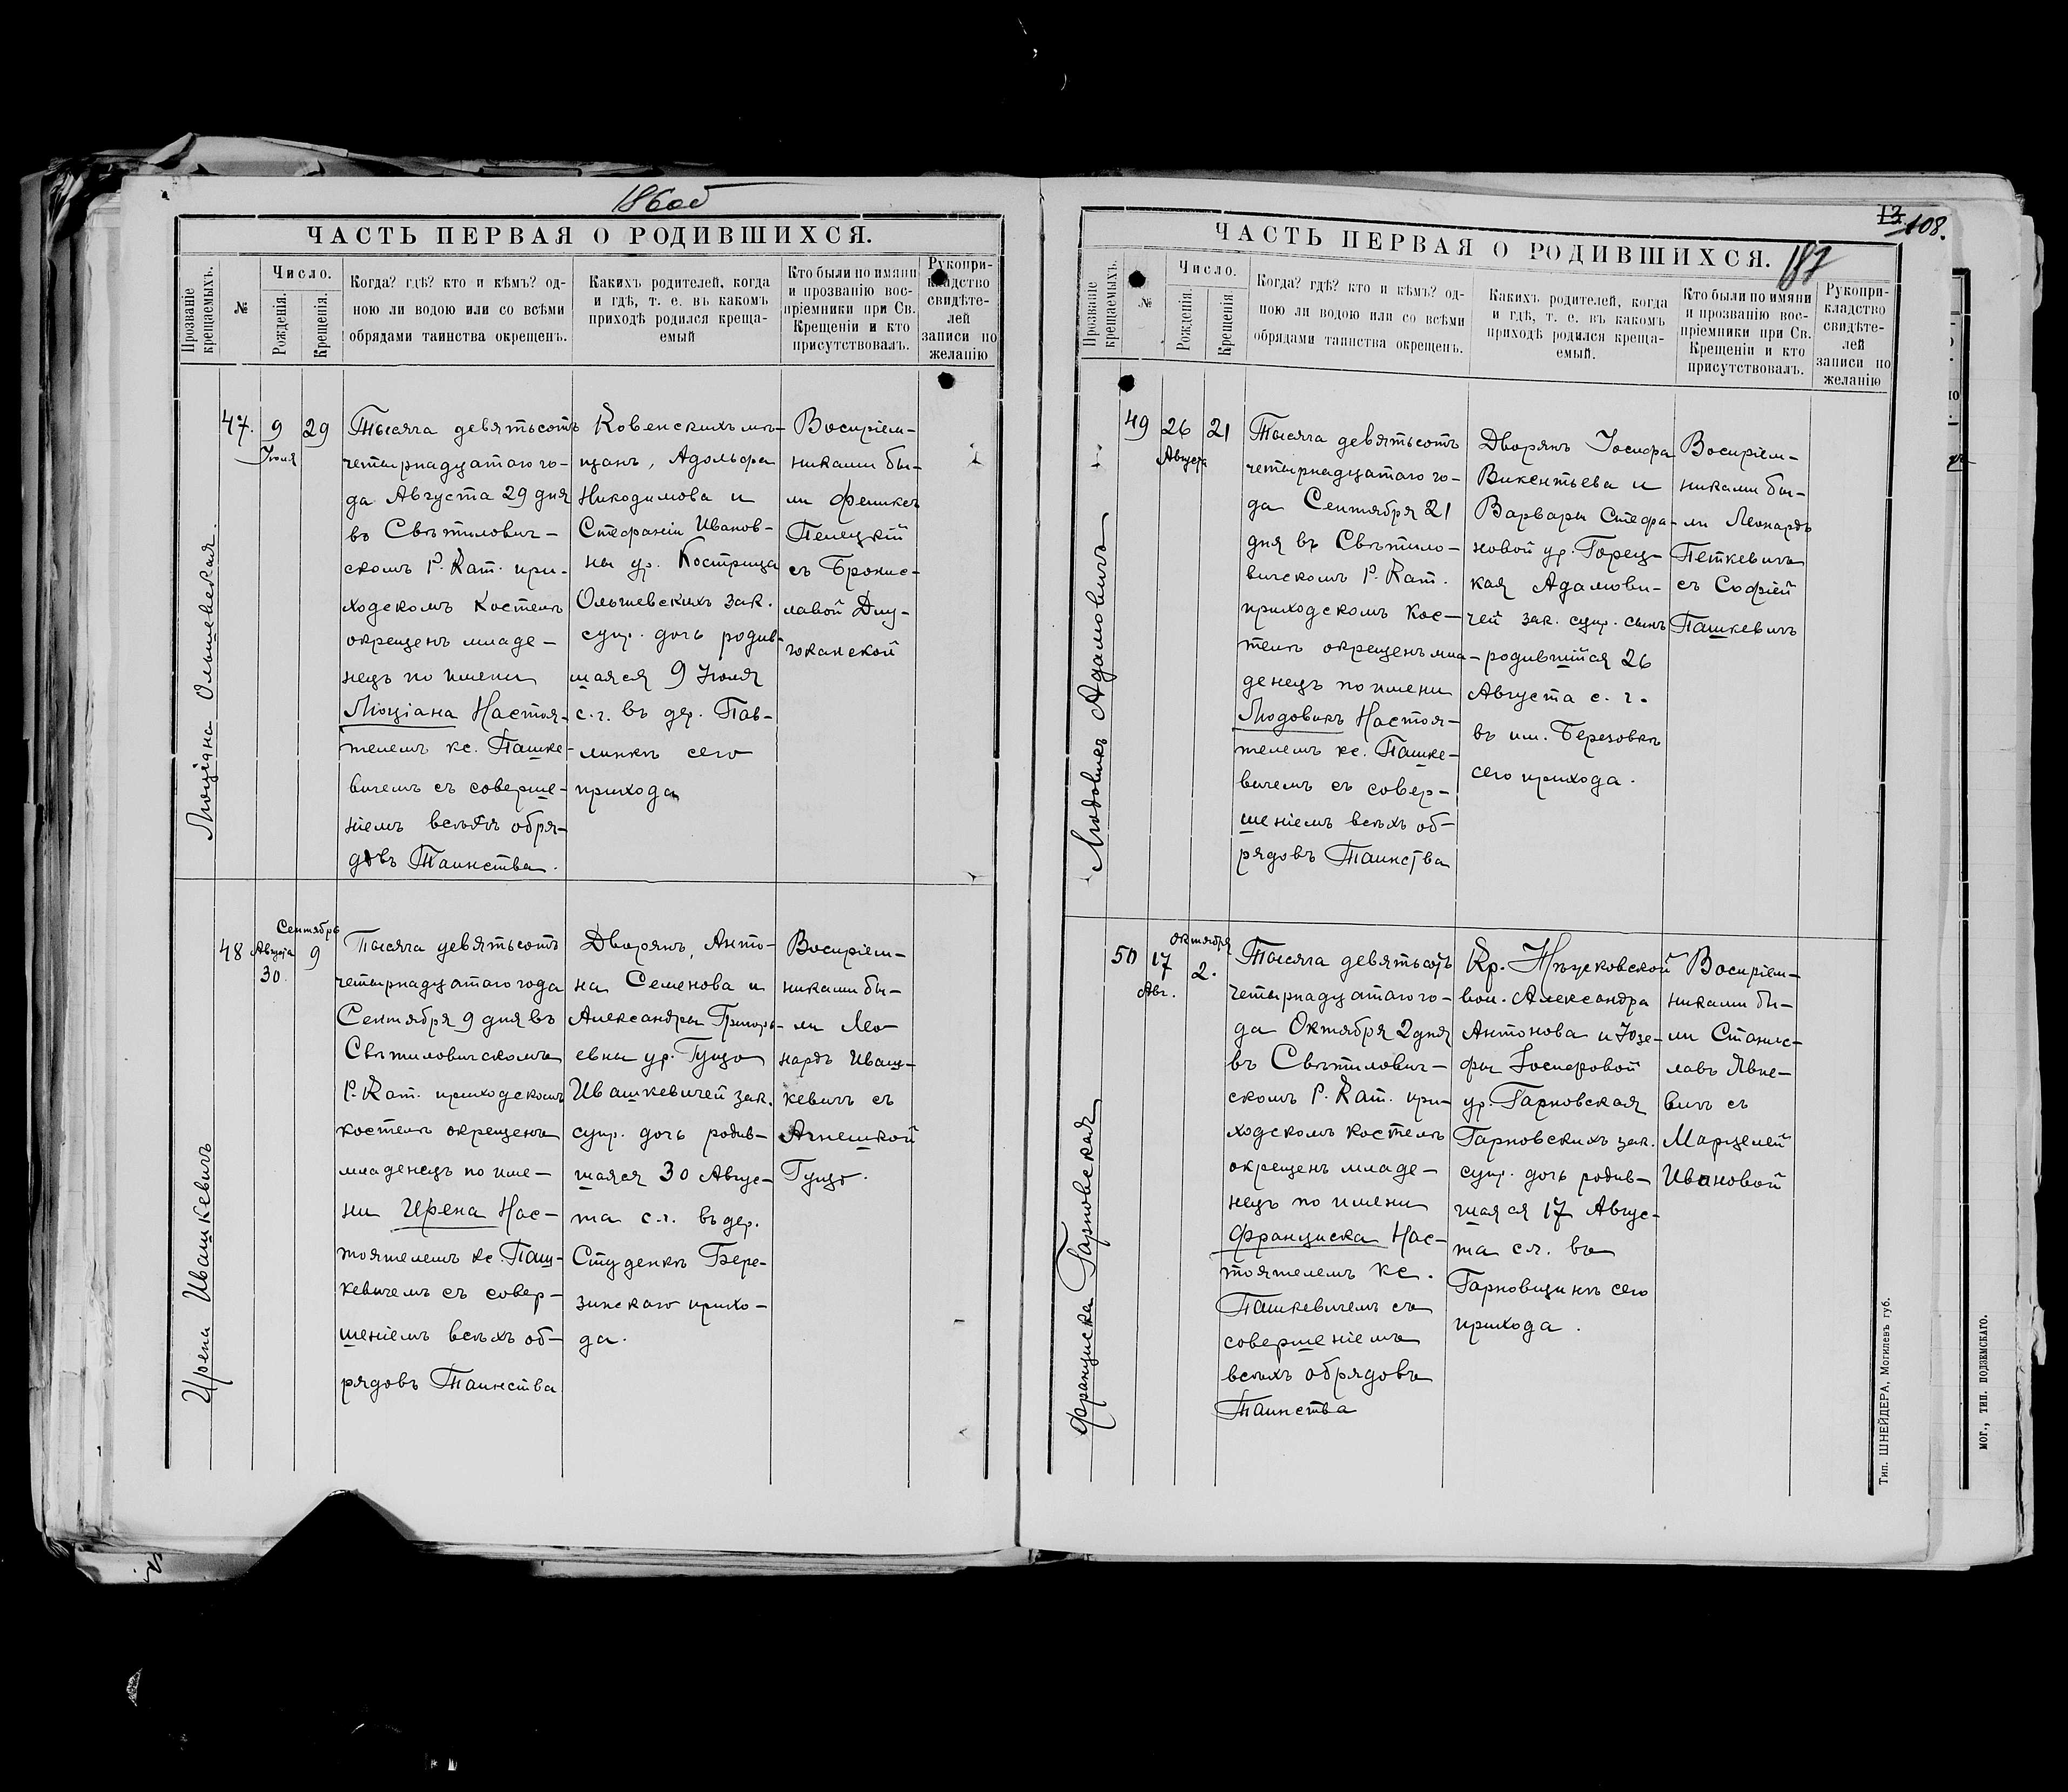 186об
ЧАСТЬ ПЕРВАЯ О РОДИВШИХСЯ.
Прозваніе крещаемыхъ.
№
Число.
Рожденія.
Крещенія.
Когда? гдѣ? кто и кѣмъ? од-
ною ли водою или со всѣми
обрядами таинства окрещенъ.
Какихъ родителей, когда
и гдѣ, т. е. въ какомъ
приходѣ родился креща-
емый
Кто были по имяни
и прозванію вос-
пріемники при Св.
Крещеніи и кто
присутствовалъ.
Рукопри-
кладство
свидѣте-
лей
записи по
желанію
Люціяна Ольшевская.
47.
9
Іюля
29
Тысяча девятьсотъ
четырнадцатаго го-
да Августа 29 дня
въ Свѣтилович-
скомъ Р. Кат. при-
ходскомъ Костелѣ
окрещенъ младе-
нецъ по имени
Люціана Настоя-
телемъ кс. Пашке-
вичемъ съ соверше-
ніемъ всѣхъ обря-
довъ Таинства.
Ковенскихъ мѣ-
щанъ, Адольфа
Никодимова и
Стефаніи Иванов-
ны ур. Кострица
Ольшевскихъ зак.
супр. дочь родив-
шаяся 9 Іюля
с.г. въ дер. Пав-
линкѣ сего
прихода
Воспріем-
никами бы-
ли Феликсъ
Пелецкій
съ Бронис-
лавой Длу-
жканской
Ирена Ивашкевичъ
48
Августа
30.
Сентябрь
9
Тысяча девятьсотъ
четырнадцатаго года
Сентября 9 дня въ
Свѣтиловичскомъ
Р. Кат. приходскомъ
костелѣ окрещенъ
младенецъ по име-
ни Ирена Нас-
тоятелемъ кс. Паш-
кевичемъ съ совер-
шеніемъ всѣхъ об-
рядовъ Таинства
Дворянъ, Анто-
на Семенова и
Александры Григорь-
евны ур. Гуцо
Ивашкевичей зак.
супр. дочь родив-
шаяся 30 Авгус-
та с.г. въ дер.
Студенкѣ Бере-
зинскаго прихо-
да.
Воспріем-
никами бы-
ли Лео
нардъ Иваш-
кевичъ съ
Агнешкой
Гуцо.
13
108.
187
ЧАСТЬ ПЕРВАЯ О РОДИВШИХСЯ.
Прозваніе крещаемыхъ.
№
Число.
Рожденія.
Крещенія.
Когда? гдѣ? кто и кѣмъ? од-
ною ли водою или со всѣми
обрядами таинства окрещенъ.
Какихъ родителей, когда
и гдѣ, т. е. въ какомъ
приходѣ родился креща-
емый.
Кто были по имяни
и прозванію вос-
пріемники при Св.
Крещеніи и кто
присутствовалъ.
Рукопри-
кладство
свидѣте-
лей
записи по
желанію
Людовикъ Адамовичъ
49
26
Августа
21
Тысяча девятьсотъ
четырнадцатаго го-
да Сентября 21
дня въ Свѣтило-
вичскомъ Р. Кат.
приходскомъ Кос-
телѣ окрещенъ мла-
денецъ по имени
Людовикъ Настоя-
телемъ кс. Пашке-
вичемъ съ совер-
шеніемъ всѣхъ об-
рядовъ Таинства
Дворянъ Іосифа
Викентьева и
Варвары Стефа-
новой ур. Горец-
кая Адамови-
чей зак. супр. сынъ
родившійся 26
Августа с. г.
въ им. Березовкѣ
сего прихода.
Воспріем-
никами бы-
ли Леонардъ
Петкевичъ
съ Софіей
Пашкевичъ
Франциска Гарновская
50
17
Авг.
Октября
2.
Тысяча девятьсотъ
четырнадцатаго го-
да Октября 2 дня
въ Свѣтилович-
скомъ Р. Кат. при-
ходскомъ костелѣ
окрещенъ младе-
нецъ по имени
Франциска Нас-
тоятелемъ кс.
Пашкевичемъ съ
совершеніемъ
всѣхъ обрядовъ
Таинства
Кр.
вол. Александра
Антонова и Юзе-
фы Іосифовой
ур. Гарновская
Гарновскихъ зак.
супр. дочь родив-
шаяся 17 Авгус-
та с.г. въ
Гарновщинѣ сего
прихода.
Воспріем-
никами бы-
ли Станис-
лавъ
съ
Марцелей
Ивановой
Тип. ШНЕЙДЕРА, Могилевъ губ.
МОГ., ТИП. ПОДЗЕМСКАГО.